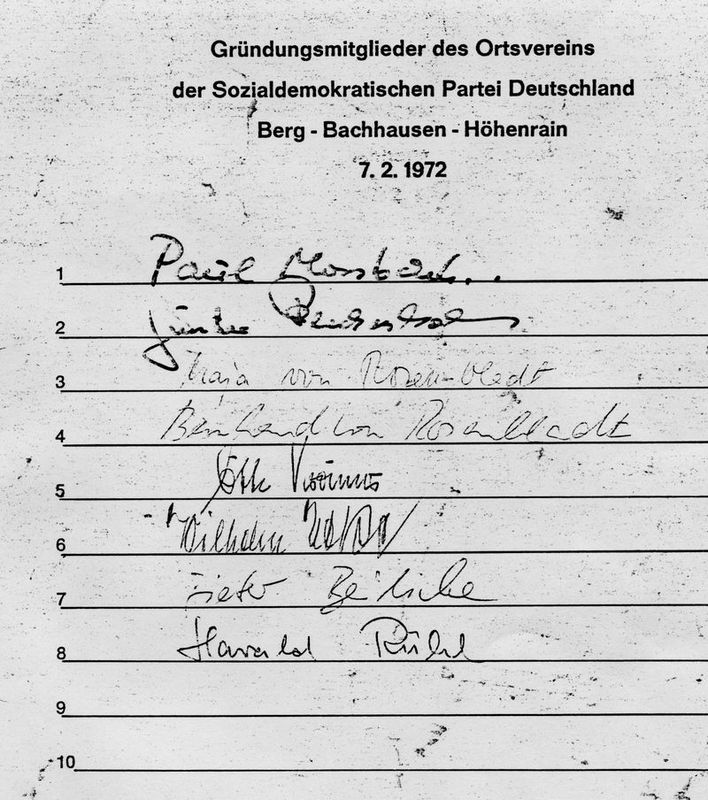 Gründungsmitglieder des Ortsvereins
der Sozialdemokratischen Partei Deutschland
Berg - Bachhausen - Höhenrain
7. 2. 1972
1 Paul
2 Günter
3 Maja von Rosenbladt
4 Bernhard von Rosenbladt
5 Otto
6 Wilhelm
7 Dieter
8 Harald Rühl
9
10